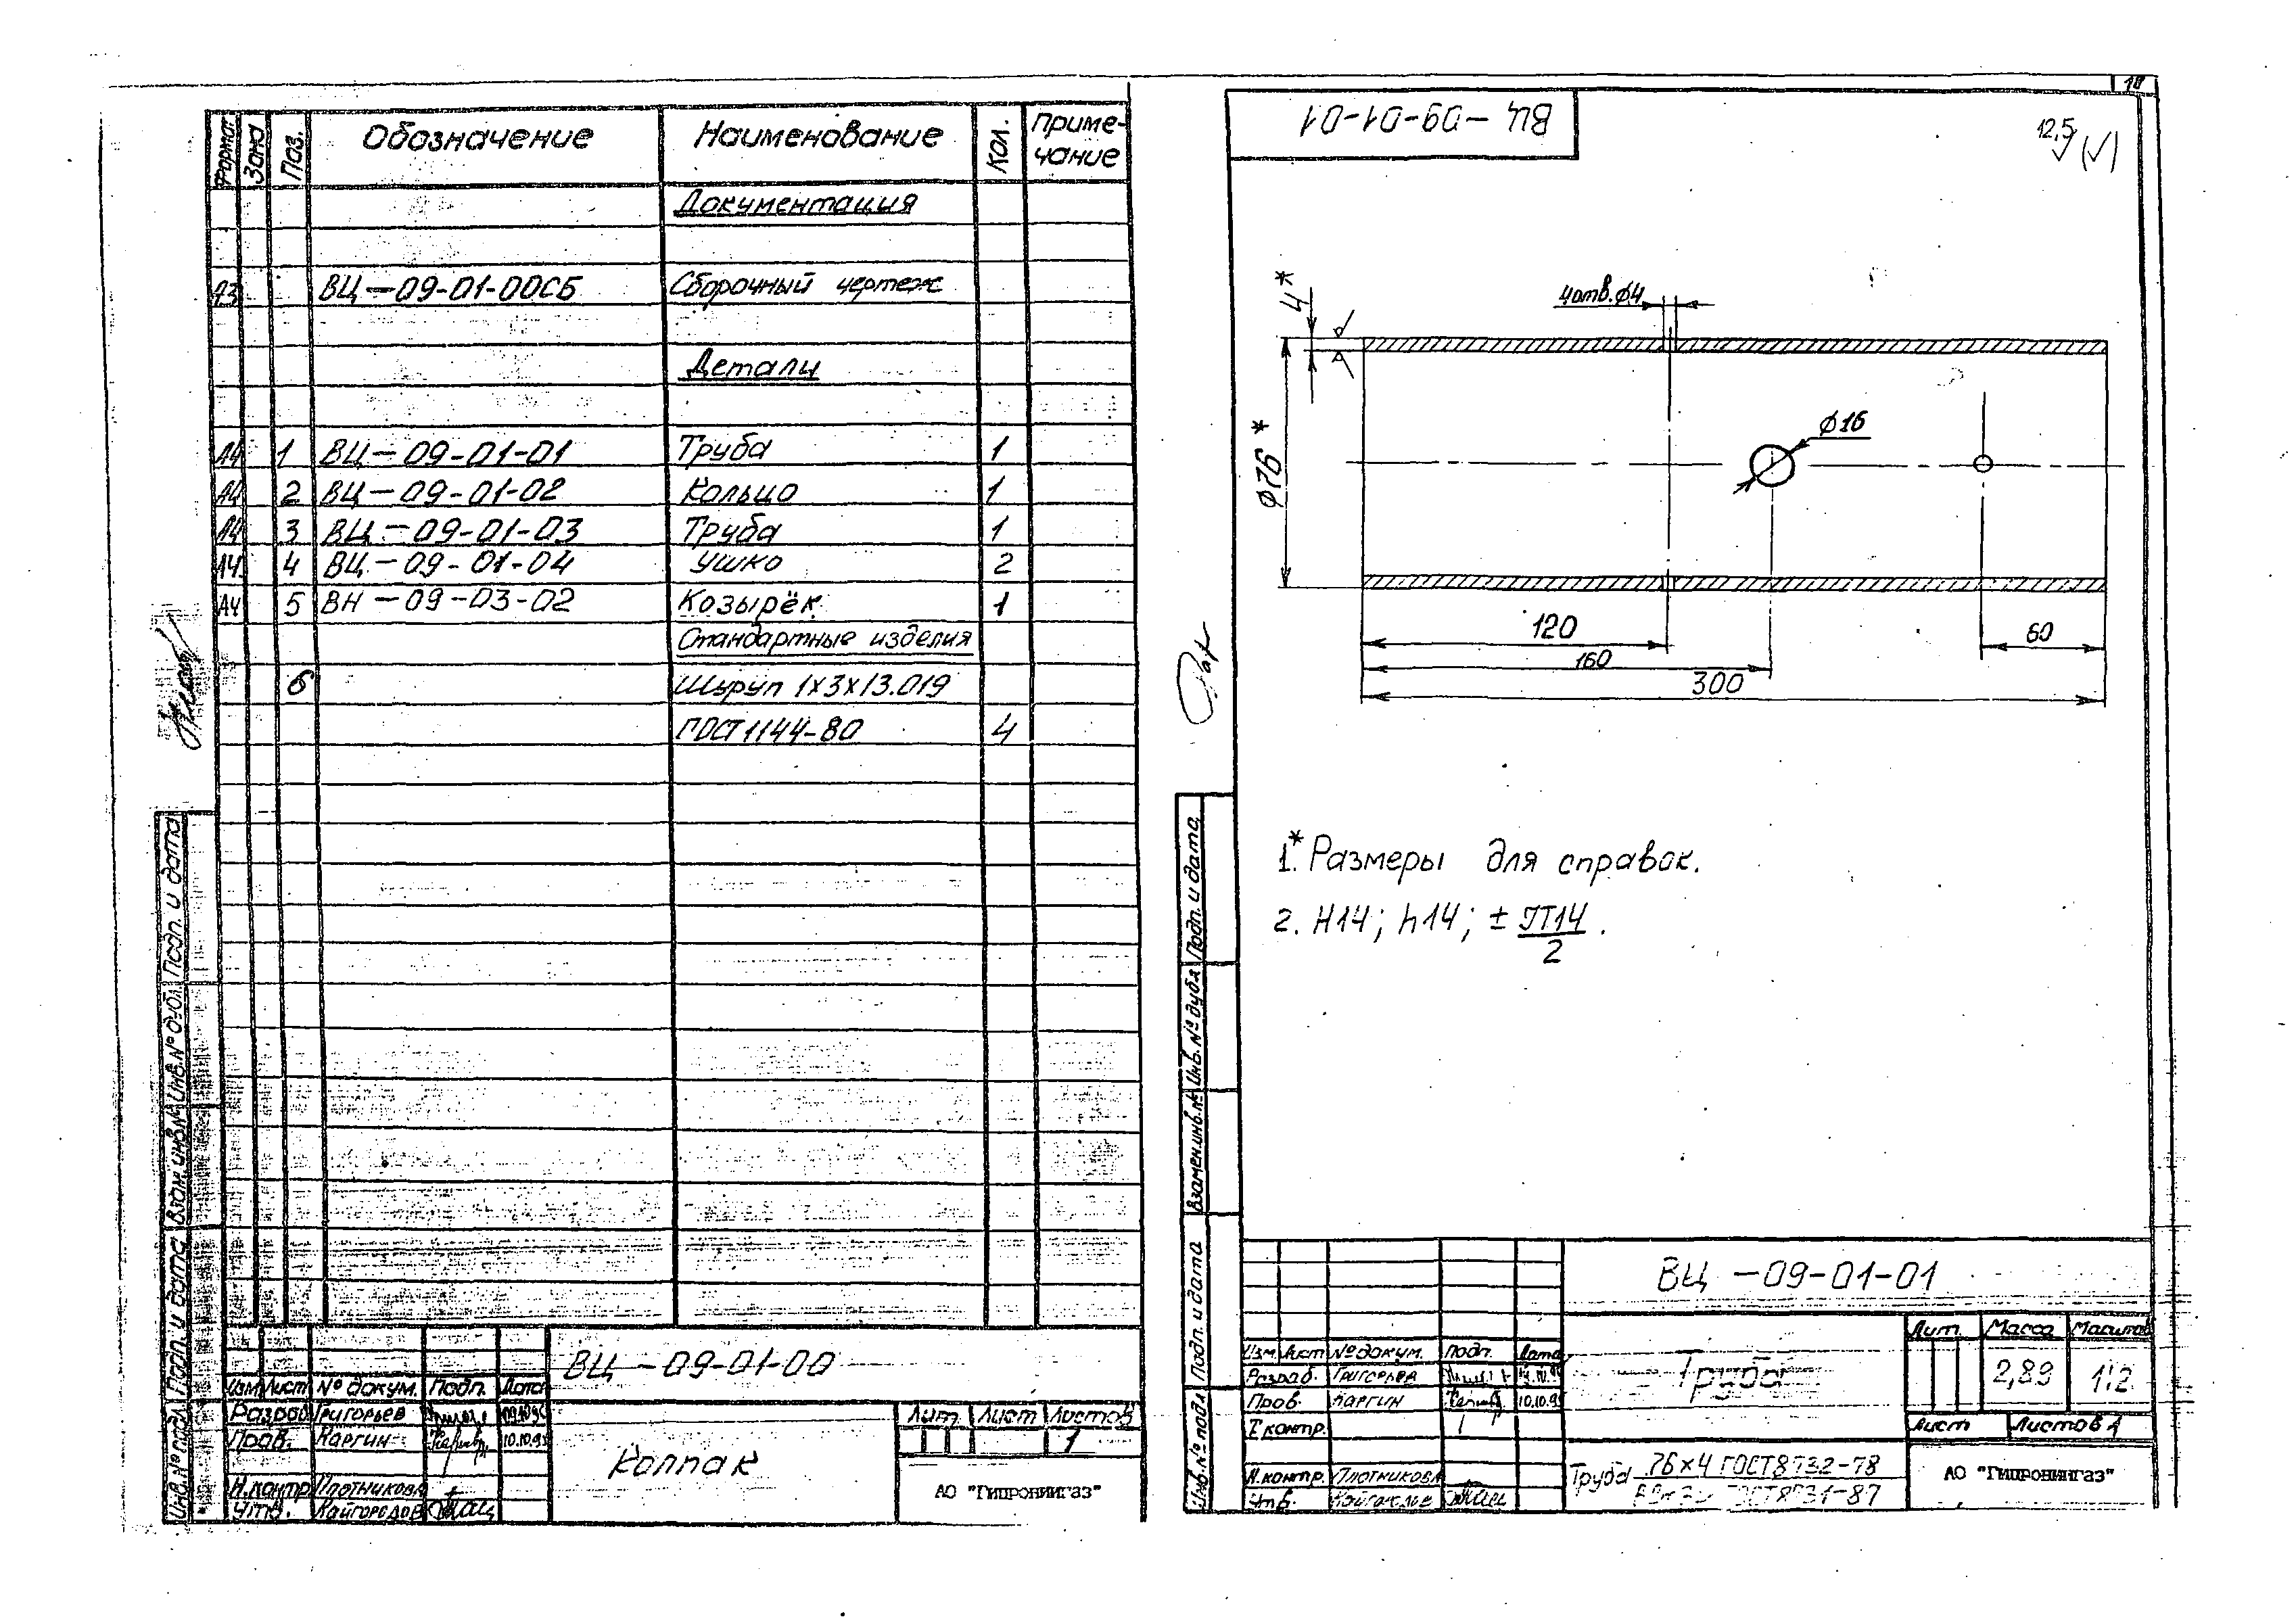 Формат Зона Поз. Обозначение Наименование Кол. Приме-
чание
Документация
А3 ВЦ-09-01-00СБ Сборочный чертеж
Детали
А4 1 ВЦ-09-01-01 Труба 1
А4 2 ВЦ-09-01-02 Кольцо 1
А4 3 ВЦ-09-01-03 Труба 1
А4 4 ВЦ-09-01-04 Ушко 2
А4 5 ВН-09-03-02 Козырёк 1
Стандартные изделия
6 Шуруп 1х3х13.019
ГОСТ 1144-80 4
Подп. и дата
Инв.№ дубл.
Взам.инв.№
Подп. и дата
Инв.№ подл
ВЦ-09-01-00
Изм Лист № докум. Подп. Дата
Разраб Григорьев 09.10.95
Пров. Каргин 10.10.95
Н.контр Плотникова
Утв. Кайгородов
Колпак
Лит. Лист Листов
1
АО "Гипрониигаз"
10
ВЦ-09-01-01
12,5 (√)
4*
4отв.ф4
ф16
ф76*
120
60
160
300
1.* Размеры для справок.
2. Н14; h14; ± IT14
2
Подп. и дата
Инв.№ дубл
Взамен.инв.№
Подп. и дата
Инв.№ подл
ВЦ-09-01-01
Изм. Лист № докум. Подп. Дата
Разраб. Григорьев
Пров. Каргин 10.10.95
Т.контр.
Н.контр. Плотникова
Утв.
Труба
Лит. Масса Масштаб
2,89 1:2
Лист Листов 1
Труба 76×4 ГОСТ8732-78
ГОСТ8731-87
АО "Гипрониигаз"